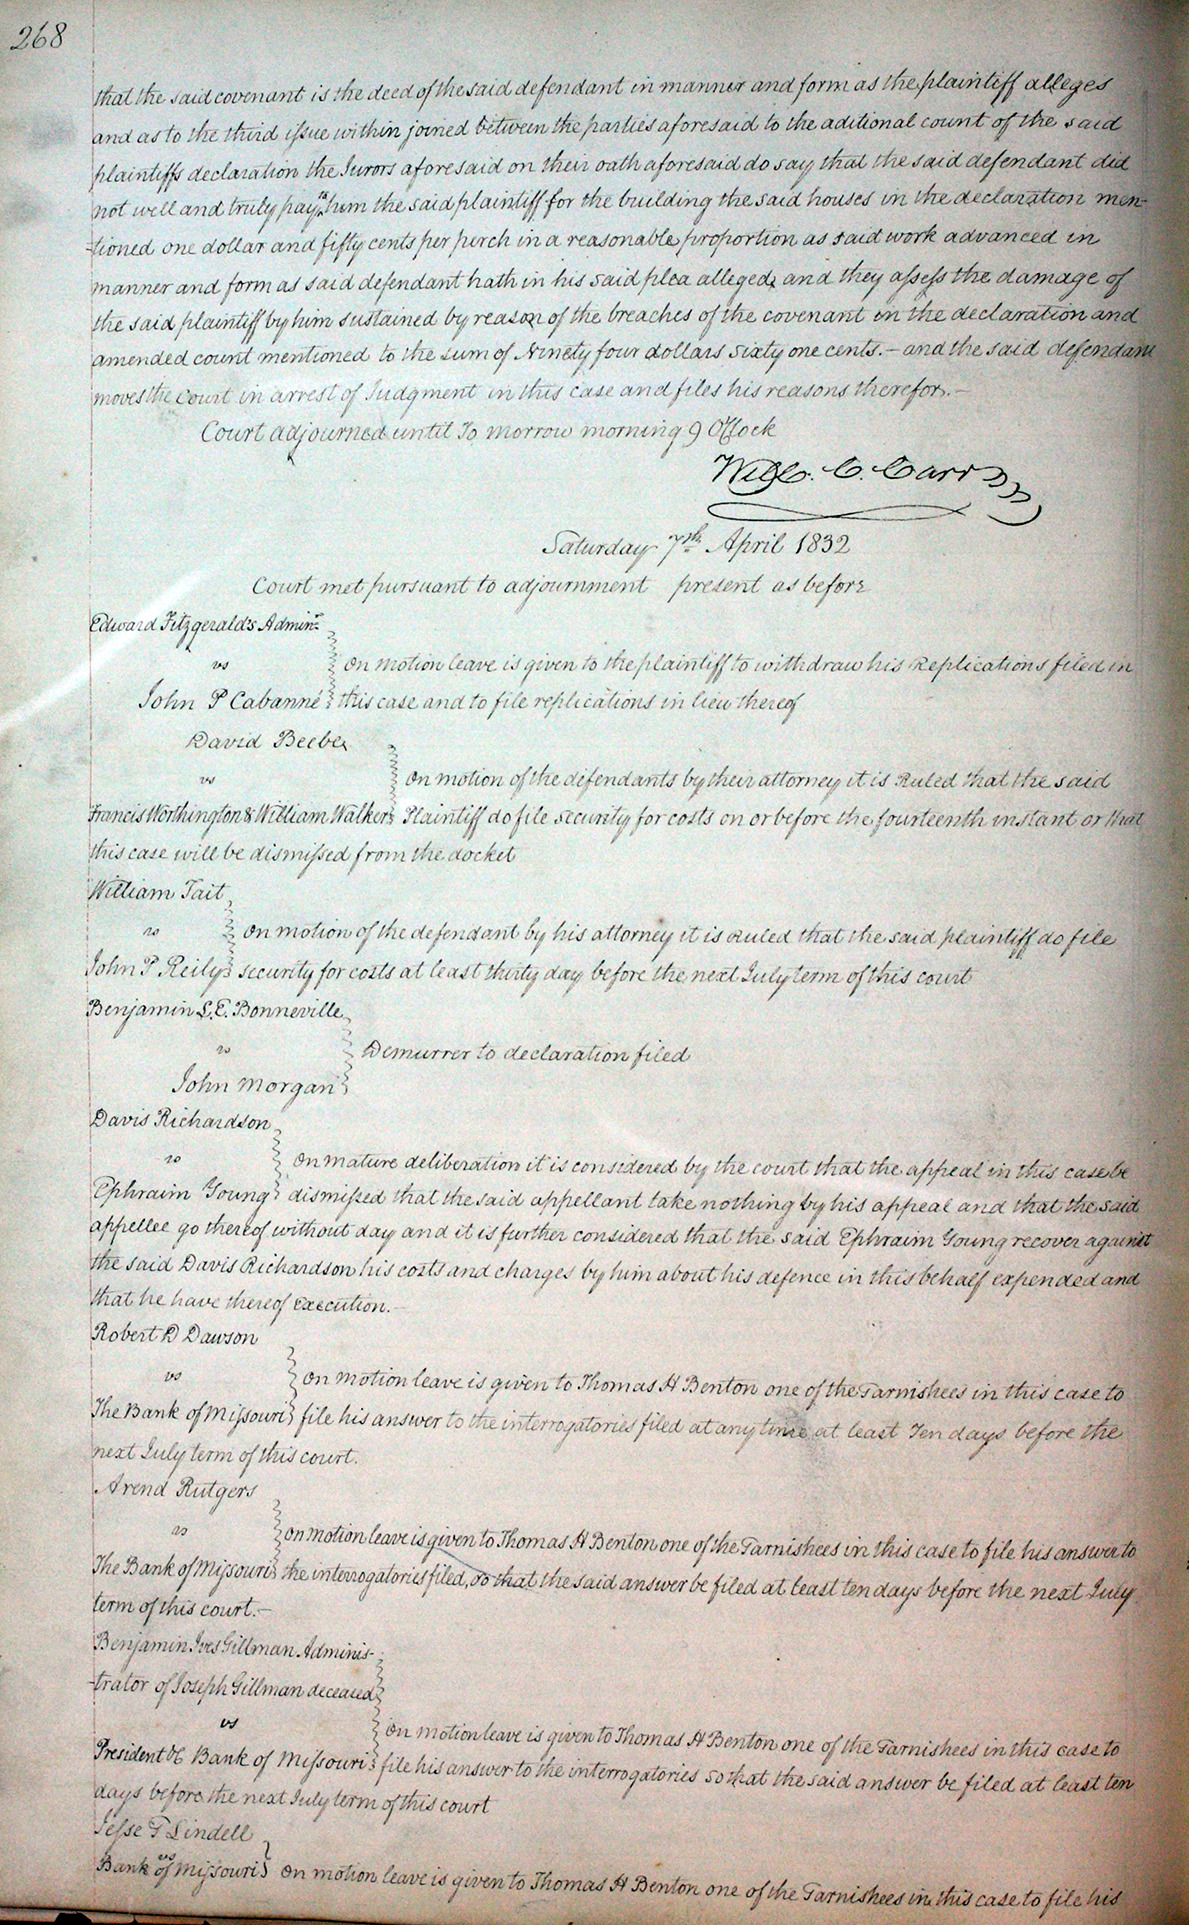 268
that the said covenant is the deed of the said defendant in manner and form as the plaintiff alleges
and as to the third issue within joined between the parties aforesaid to the aditional count of the said
plaintiffs declaration the Jurors aforesaid on their oath aforesaid do say that the said defendant did
not well and truly pay to him the said plaintiff for the building the said houses in the declaration men-
-tioned one dollar and fifty cents per perch in a reasonable proportion as said work advanced in
manner and form as said defendant hath in his said plea alleged, and they assess the damage of
the said plaintiff by him sustained by reason of the breaches of the covenant in the declaration and
amended count mentioned to the sum of Ninety four dollars sixty one cents. – and the said defendant
moves the Court in arrest of Judgment in this case and files his reasons therefor. –
Court adjourned until To morrow morning 9 OClock
Will. C. Carr
Saturday 7th April 1832
Court met pursuant to adjournment present as before
Edward Fitzgerald's Adminr
vs
On motion leave is given to the plaintiff to withdraw his Replications filed in
John P Cabanné this case and to file replications in lieu thereof
David Beebe
vs
On motion of the defendants by their attorney it is Ruled that the said
Francis Worthington & William Walker Plaintiff do file security for costs on or before the fourteenth instant or that
this case will be dismissed from the docket
William Tait
vs
On motion of the defendant by his attorney it is Ruled that the said plaintiff do file
John P Reily security for costs at least thirty day before the next July term of this court
Benjamin L.E. Bonneville
vs
Demurrer to declaration filed
John Morgan
Davis Richardson
vs
On mature deliberation it is considered by the court that the appeal in this case be
Ephraim Young dismissed that the said appellant take nothing by his appeal and that the said
appellee go thereof without day and it is further considered that the said Ephraim Young recover against
the said Davis Richardson his costs and charges by him about his defence in this behalf expended and
that he have thereof Execution. –
Robert D Dawson
vs
On motion leave is given to Thomas H Benton one of the Garnishees in this case to
The Bank of Missouri file his answer to the interrogatories filed at any time at least Ten days before the
next July term of this court.
Arend Rutgers
vs
On motion leave is given to Thomas H Benton one of the Garnishees in this case to file his answer to
The Bank of Missouri the interrogatories filed, so that the said answer be filed at least ten days before the next July
term of this court. –
Benjamin Ives Gillman Adminis-
-trator of Joseph Gillman deceased
vs
On motion leave is given to Thomas H Benton one of the Garnishees in this case to
President &c Bank of Missouri file his answer to the interrogatories so that the said answer be filed at least ten
days before the next July term of this court
Jesse G Lindell
vs
Bank of Missouri On motion leave is given to Thomas H Benton one of the Garnishees in this case to file his